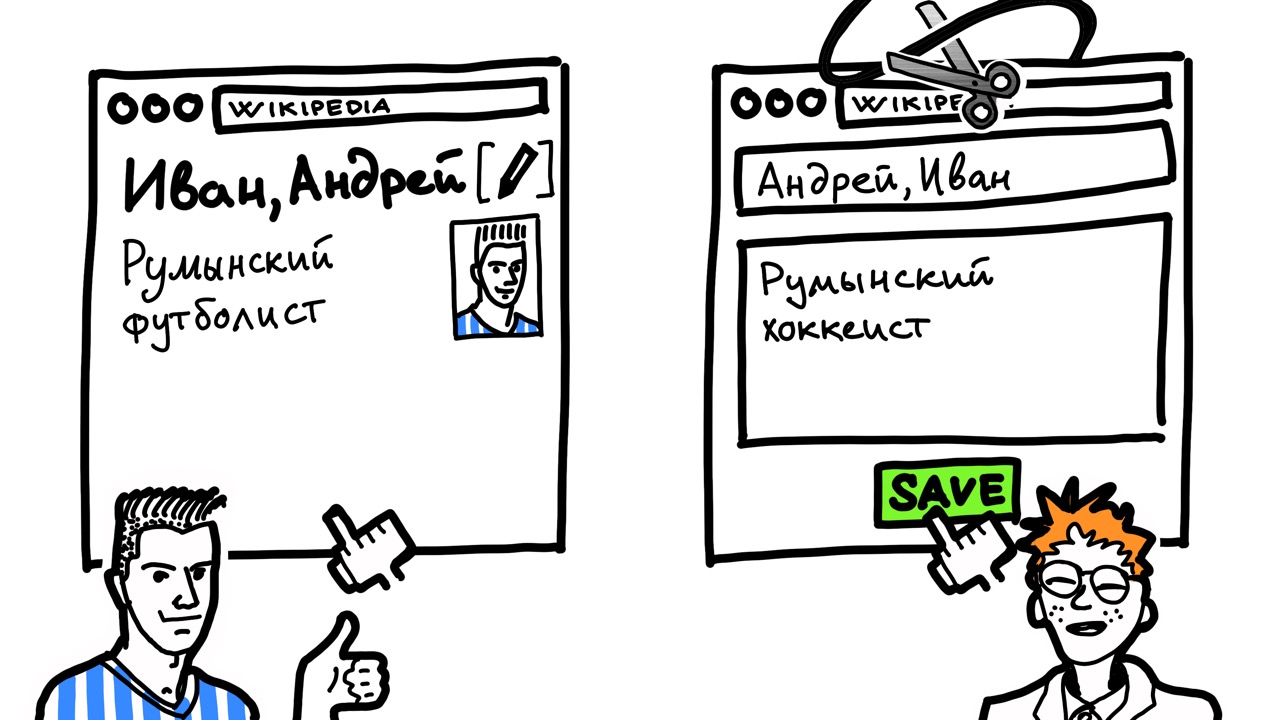 WIKIPEDIA
Иван, Андрей
Румынский
футболист
WIKIPE
Андрей, Иван
Румынский
хоккеист
SAVE